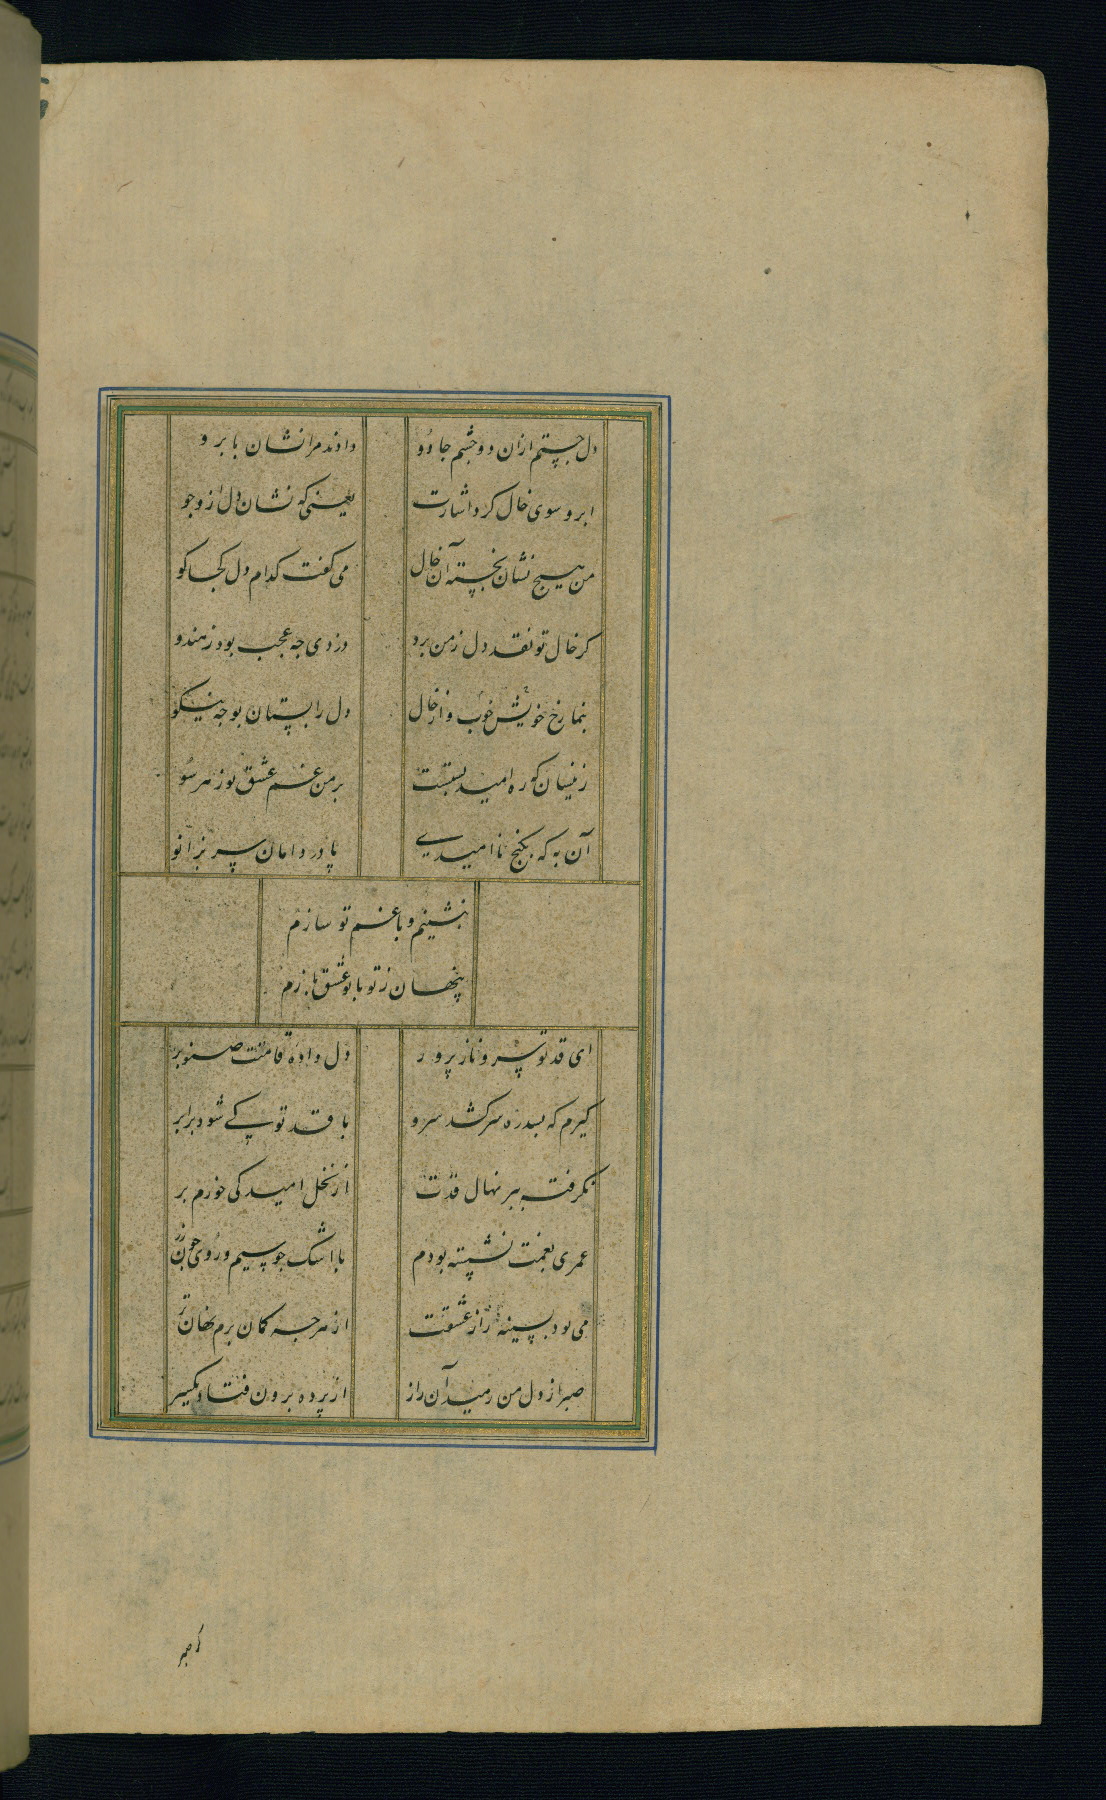 دل جستم ازان دو چشم جادو دادند مرا نشان بابرو
ابرو سوی خال کرد اشارت یعنی که نشان دل ازو جو
من هیچ نشان نجسته آن خال می گفت کدام دل کجا کو
کر خال تو نقد دل ز من برد دزدی چه عجب بود ز هندو
بنما رخ خویش خوب و از خال دل را بستان بوجه نیکو
زینسان که ره امید بستست بر من غم عشق تو ز هر سو
آن به که بکنج ناامیدی پا در دامان سر بزانو
بنشینم و با غم تو سازم
پنهان ز تو با تو عشق بازم
ای قد تو سرو ناز پرور دل داده قامتت صنوبر
کیرم که بسدره سر کشد سرو با قد تو کی شود برابر
نکرفته ببر نهال قدت از نخل امید کی خورم بر
عمری بغمت نشسته بودم با اشک چو سیم و روی چون زر
می بود بسینه راز عشقت از هرچه کمان برم نهان تر
صبر از دل من رمید آن راز از پرده برون فتاد یکسر